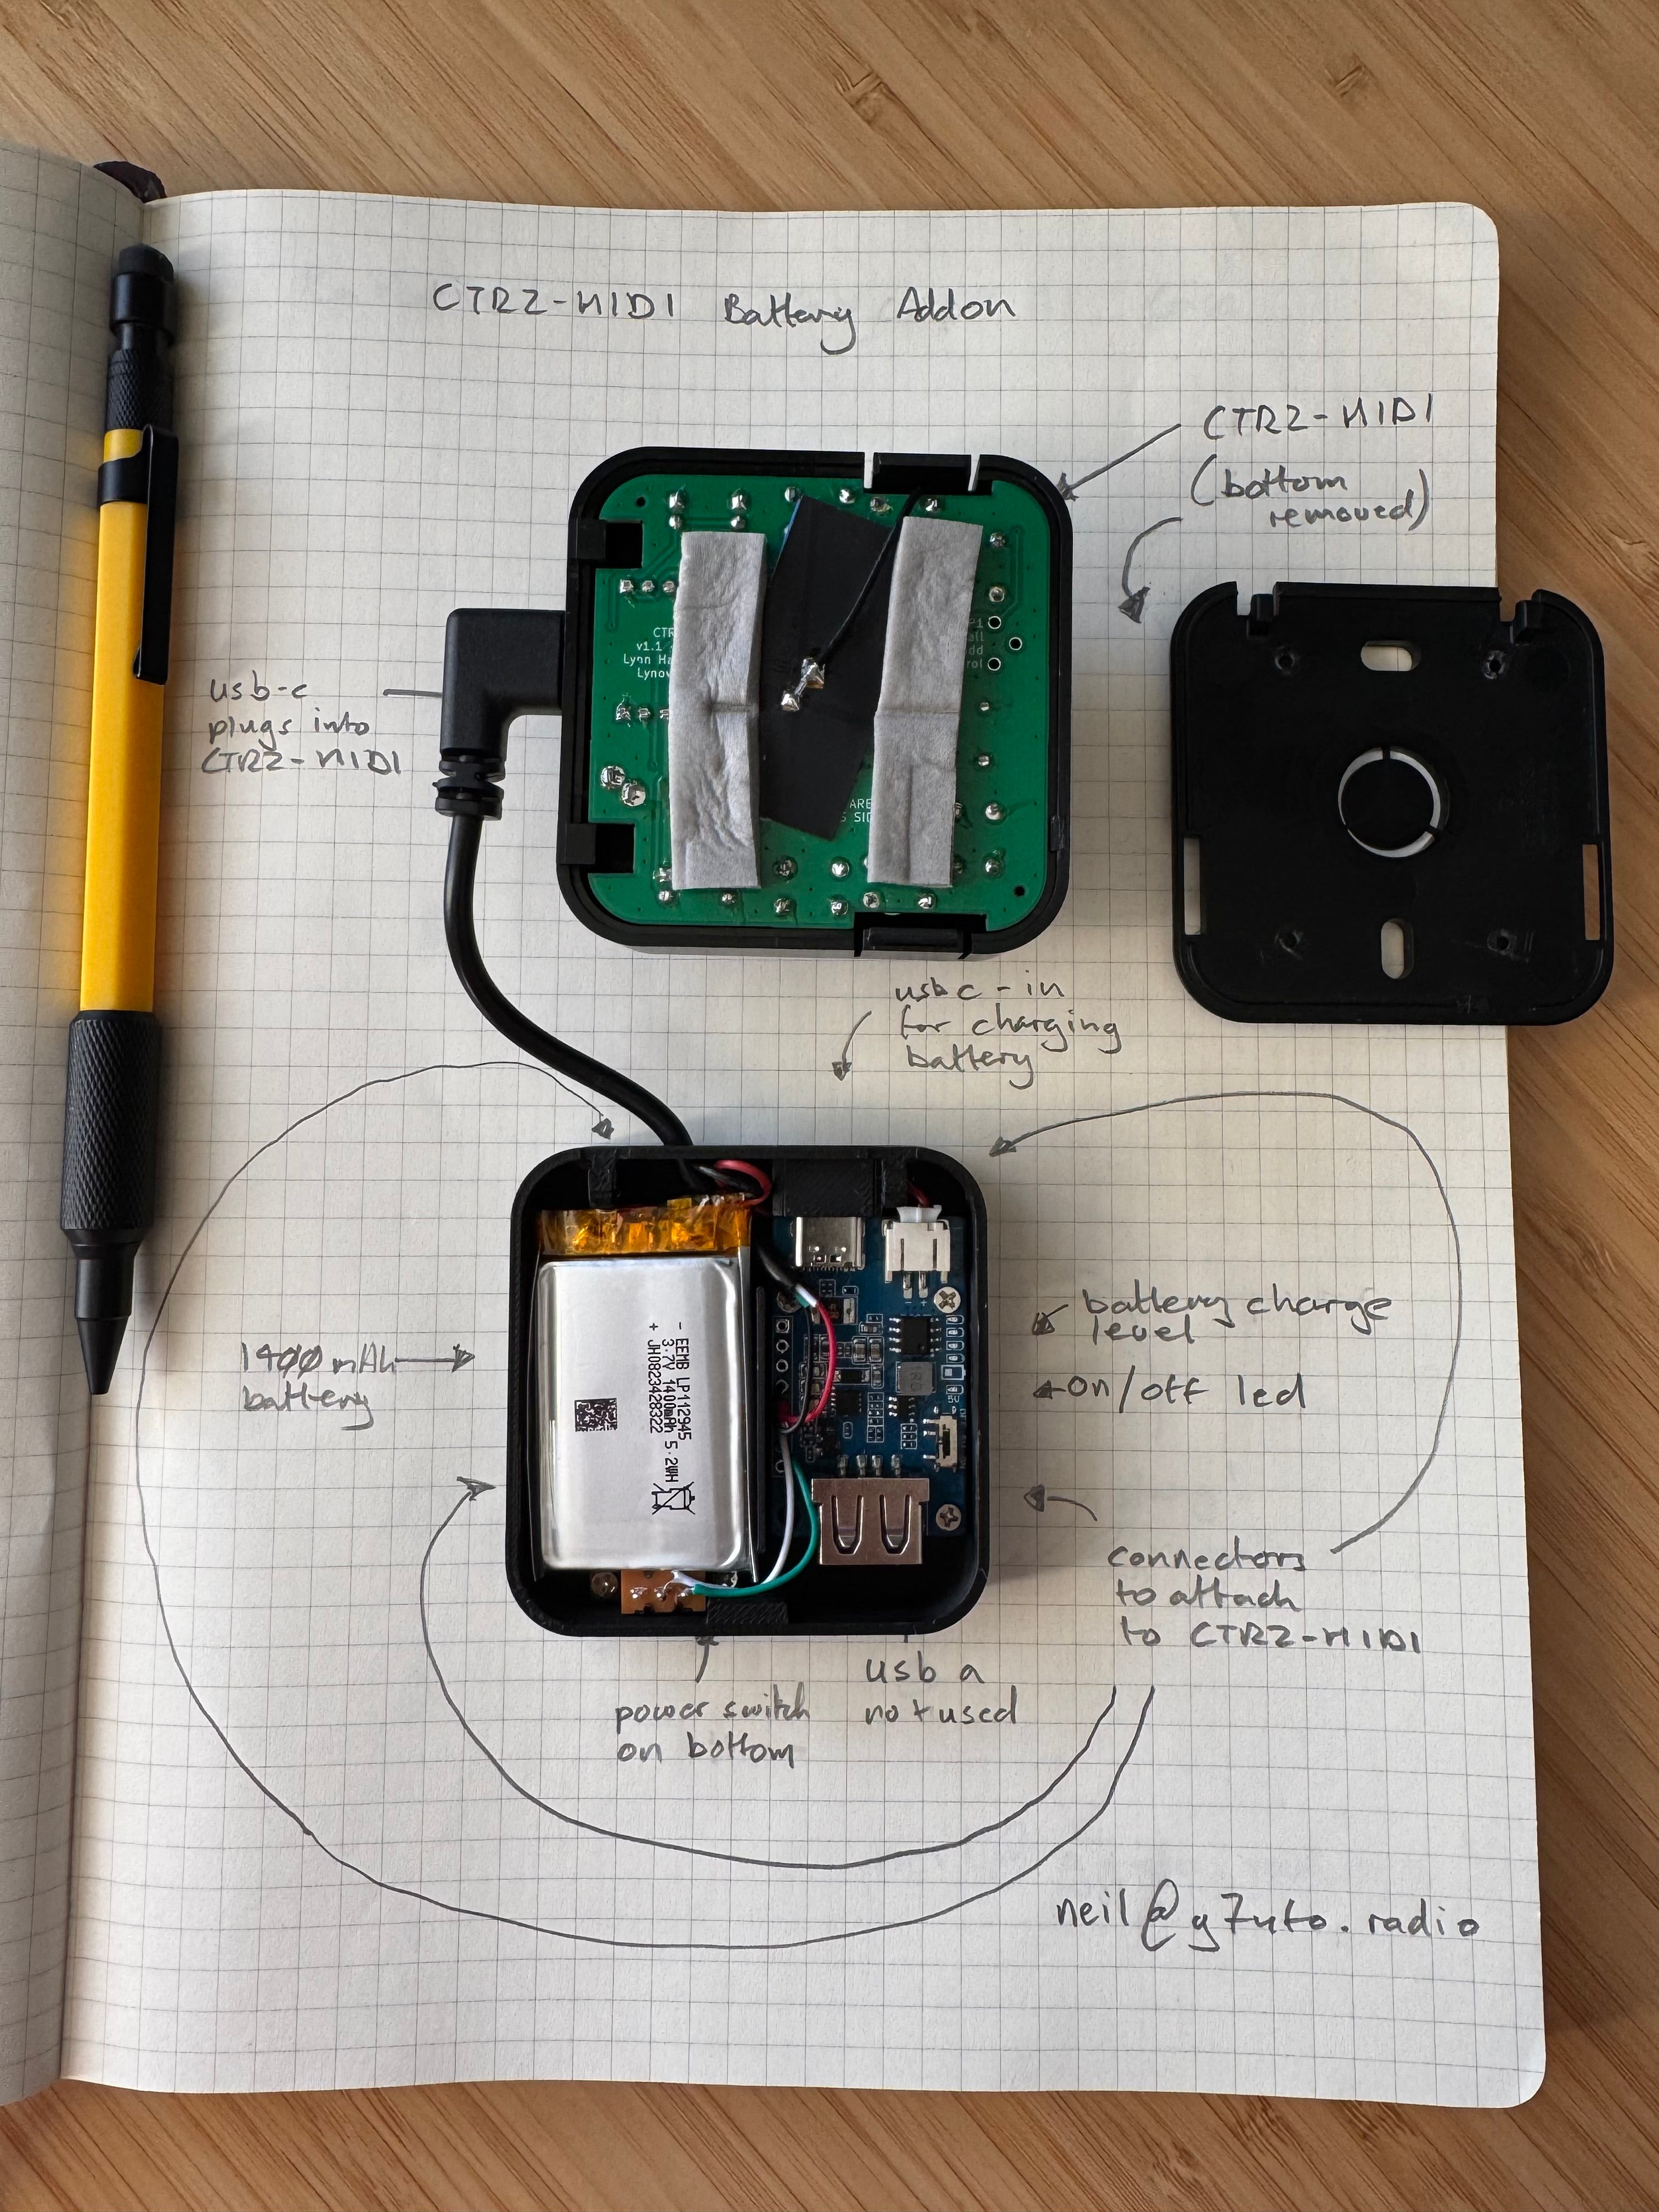 CTR2-MIDI Battery Addon
CTR2-MIDI
(bottom
removed)
CTR
v1.1
Lynn Ha
Lynov
P1
all
dd
rol
ARE
S SID
usb-c
plugs into
CTR2-MIDI
usb c-in
for charging
battery
battery charge
level
on/off led
1400 mAh
battery
- EEMB LP112945
3.7V 1400mAh 5.2WH
+ JH0823428322
connectors
to attach
to CTR2-MIDI
power switch
on bottom
usb a
not used
neil@g7uto.radio